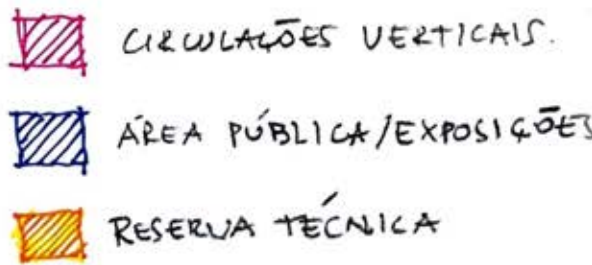 CIRCULAÇÕES VERTICAIS.
ÁREA PÚBLICA/EXPOSIÇÕES
RESERVA TÉCNICA